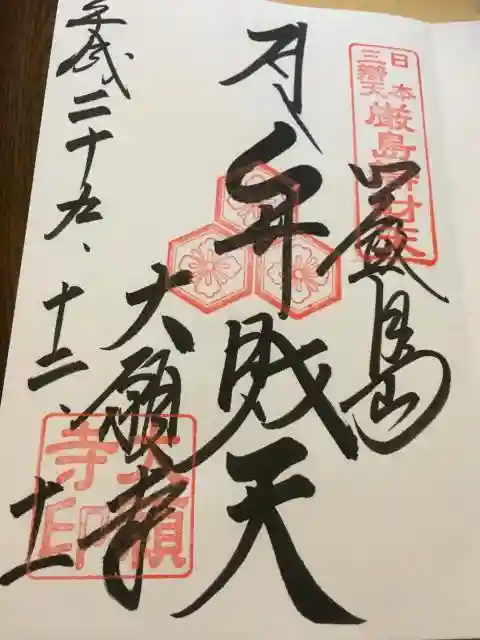 日本
三辯天
厳島辨財天
嚴島
弁財天
大願寺
大願
寺印
平成二十九、十二、十一